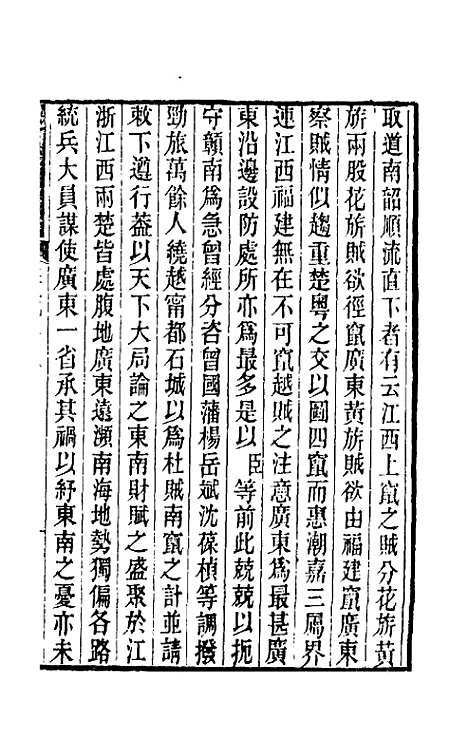 取道南韶順流直下者有云江西上竄之賊分花旂黃
旂兩股花旂賊欲徑竄廣東黃旂賊欲由福建竄廣東
察賊情似趨重楚粵之交以圖四竄而惠潮嘉三屬界
連江西福建無在不可竄越賊之注意廣東爲最甚廣
東沿邊設防處所亦爲最多是以臣等前此兢兢以扼
守贛南爲急曾經分咨曾國藩楊岳斌沈葆楨等調撥
勁旅萬餘人繞越甯都石城以爲杜賊南竄之計並請
敕下遵行葢以天下大局論之東南財賦之盛聚於江
浙江西兩楚皆處腹地廣東遠瀕南海地勢獨偏各路
統兵大員謀使廣東一省承其禍以紓東南之憂亦未